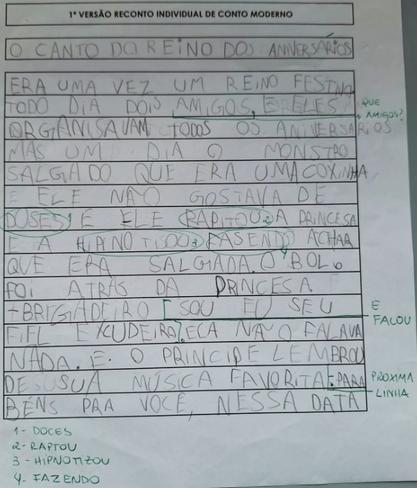 1ª VERSÃO RECONTO INDIVIDUAL DE CONTO MODERNO
O CANTO DO REINO DOS ANIVERSÁRIOS
ERA UMA VEZ UM REINO FESTIVO
TODO DIA DOIS AMIGOS, E ELES QUE AMIGOS?
ORGANISAVAM TODOS OS ANIVERSARIOS
MAS UM DIA O MONSTRO
SALGADO QUE ERA UMA COXINHA
E ELE NÃO GOSTAVA DE
DOSES¹ E ELE RAPITOU2 A PRINCESA
E A HIPINOTISOU3 FASENDO4 ACHAR
QUE ERA SALGADA. O BOLO
FOI ATRÁS DA PRINCESA
+BRIGADEIRO [SOU EU SEU E FALOU
FIEL EXCUDEIRA]. ECA NÃO FALAVA
NADA. E. O PRINCIPE LEMBROU
DE SUA MÚSICA FAVORITA: PARA PRÓXIMA LINHA
BÉNS PRA VOCÊ, NESSA DATA
1- DOCES
2- RAPTOU
3- HIPNOTIZOU
4- FAZENDO